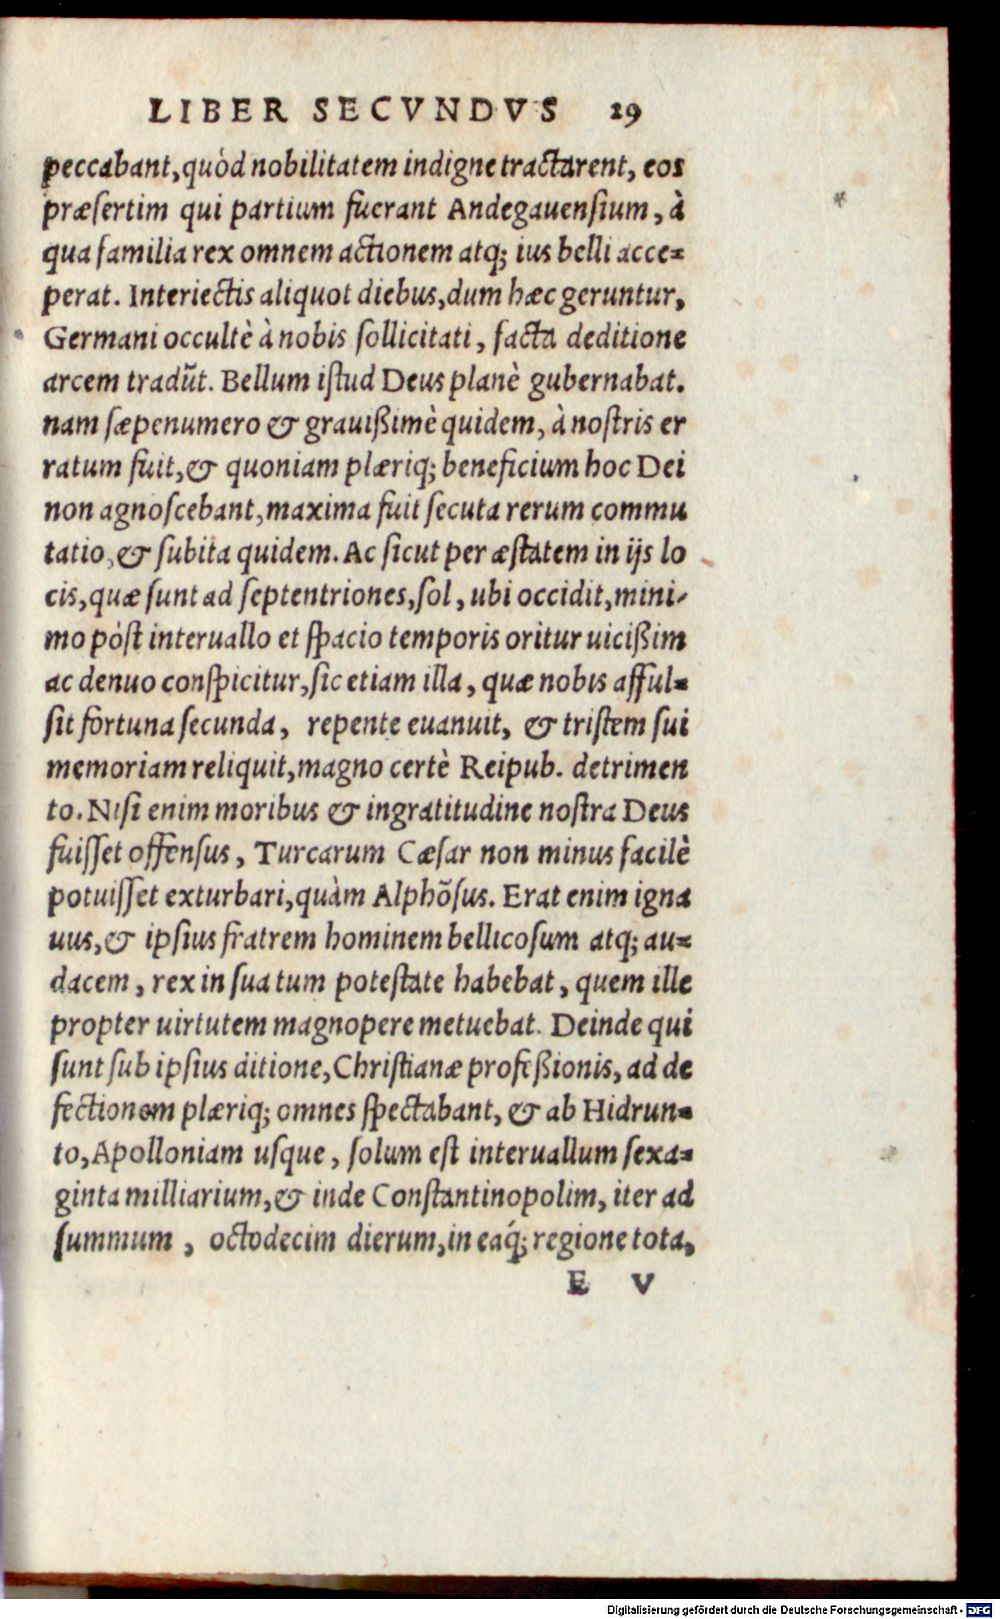 LIBER SECVNDVS 29
peccabant, quòd nobilitatem indigne tractarent, eos
præsertim qui partium fuerant Andegauensium, à
qua familia rex omnem actionem atq; ius belli acce=
perat. Interiectis aliquot diebus, dum hæc geruntur,
Germani occultè à nobis sollicitati, facta deditione
arcem tradũt. Bellum istud Deus planè gubernabat.
nam sæpenumero & grauißimè quidem, à nostris er
ratum fuit, & quoniam plæriq; beneficium hoc Dei
non agnoscebant, maxima fuit secuta rerum commu
tatio, & subita quidem. Ac sicut per æstatem in ijs lo
cis, quæ sunt ad septentriones, sol, ubi occidit, mini-
mo pòst interuallo et spacio temporis oritur uicißim
ac denuo conspicitur, sic etiam illa, quæ nobis afful=
sit fortuna secunda, repente euanuit, & tristem sui
memoriam reliquit, magno certè Reipub. detrimen
to. Nisi enim moribus & ingratitudine nostra Deus
fuisset offensus, Turcarum Cæsar non minus facilè
potuisset exturbari, quàm Alphõsus. Erat enim igna
uus, & ipsius fratrem hominem bellicosum atq; au=
dacem, rex in sua tum potestate habebat, quem ille
propter uirtutem magnopere metuebat. Deinde qui
sunt sub ipsius ditione, Christianæ profeßionis, ad de
fectionem plæriq; omnes spectabant, & ab Hidrun=
to, Apolloniam usque, solum est interuallum sexa=
ginta milliarium, & inde Constantinopolim, iter ad
summum, octodecim dierum, in eaq́; regione tota,
E V
Digitalisierung gefördert durch die Deutsche Forschungsgemeinschaft - DFG